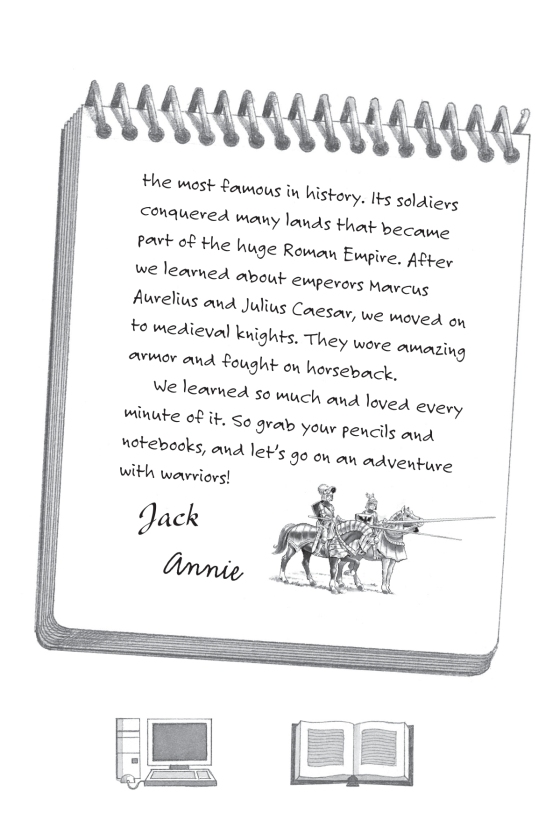 the most famous in history. Its soldiers
conquered many lands that became
part of the huge Roman Empire. After
we learned about emperors Marcus
Aurelius and Julius Caesar, we moved on
to medieval knights. They wore amazing
armor and fought on horseback.
We learned so much and loved every
minute of it. So grab your pencils and
notebooks, and let's go on an adventure
with warriors!
Jack
Annie